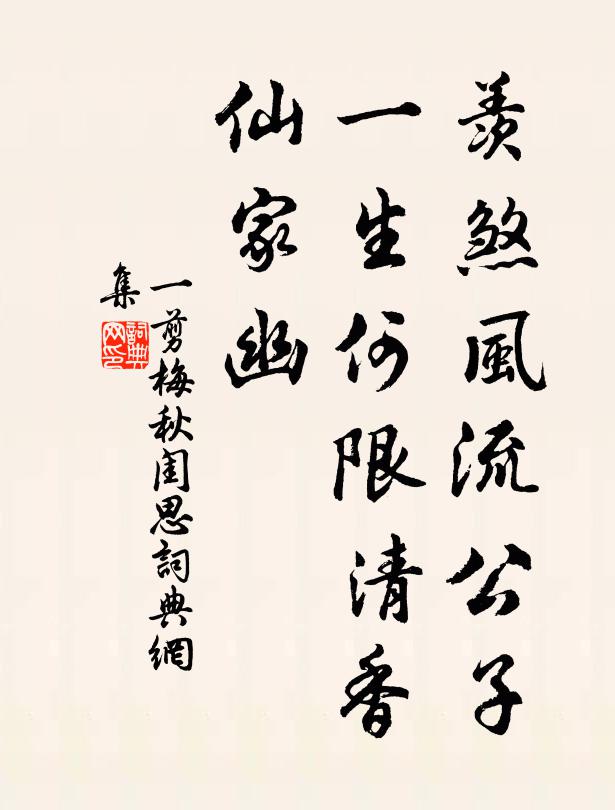 羡煞風流公子
一生何限清香
仙家幽
一剪梅秋閨思詞典網
集
詞典
网印